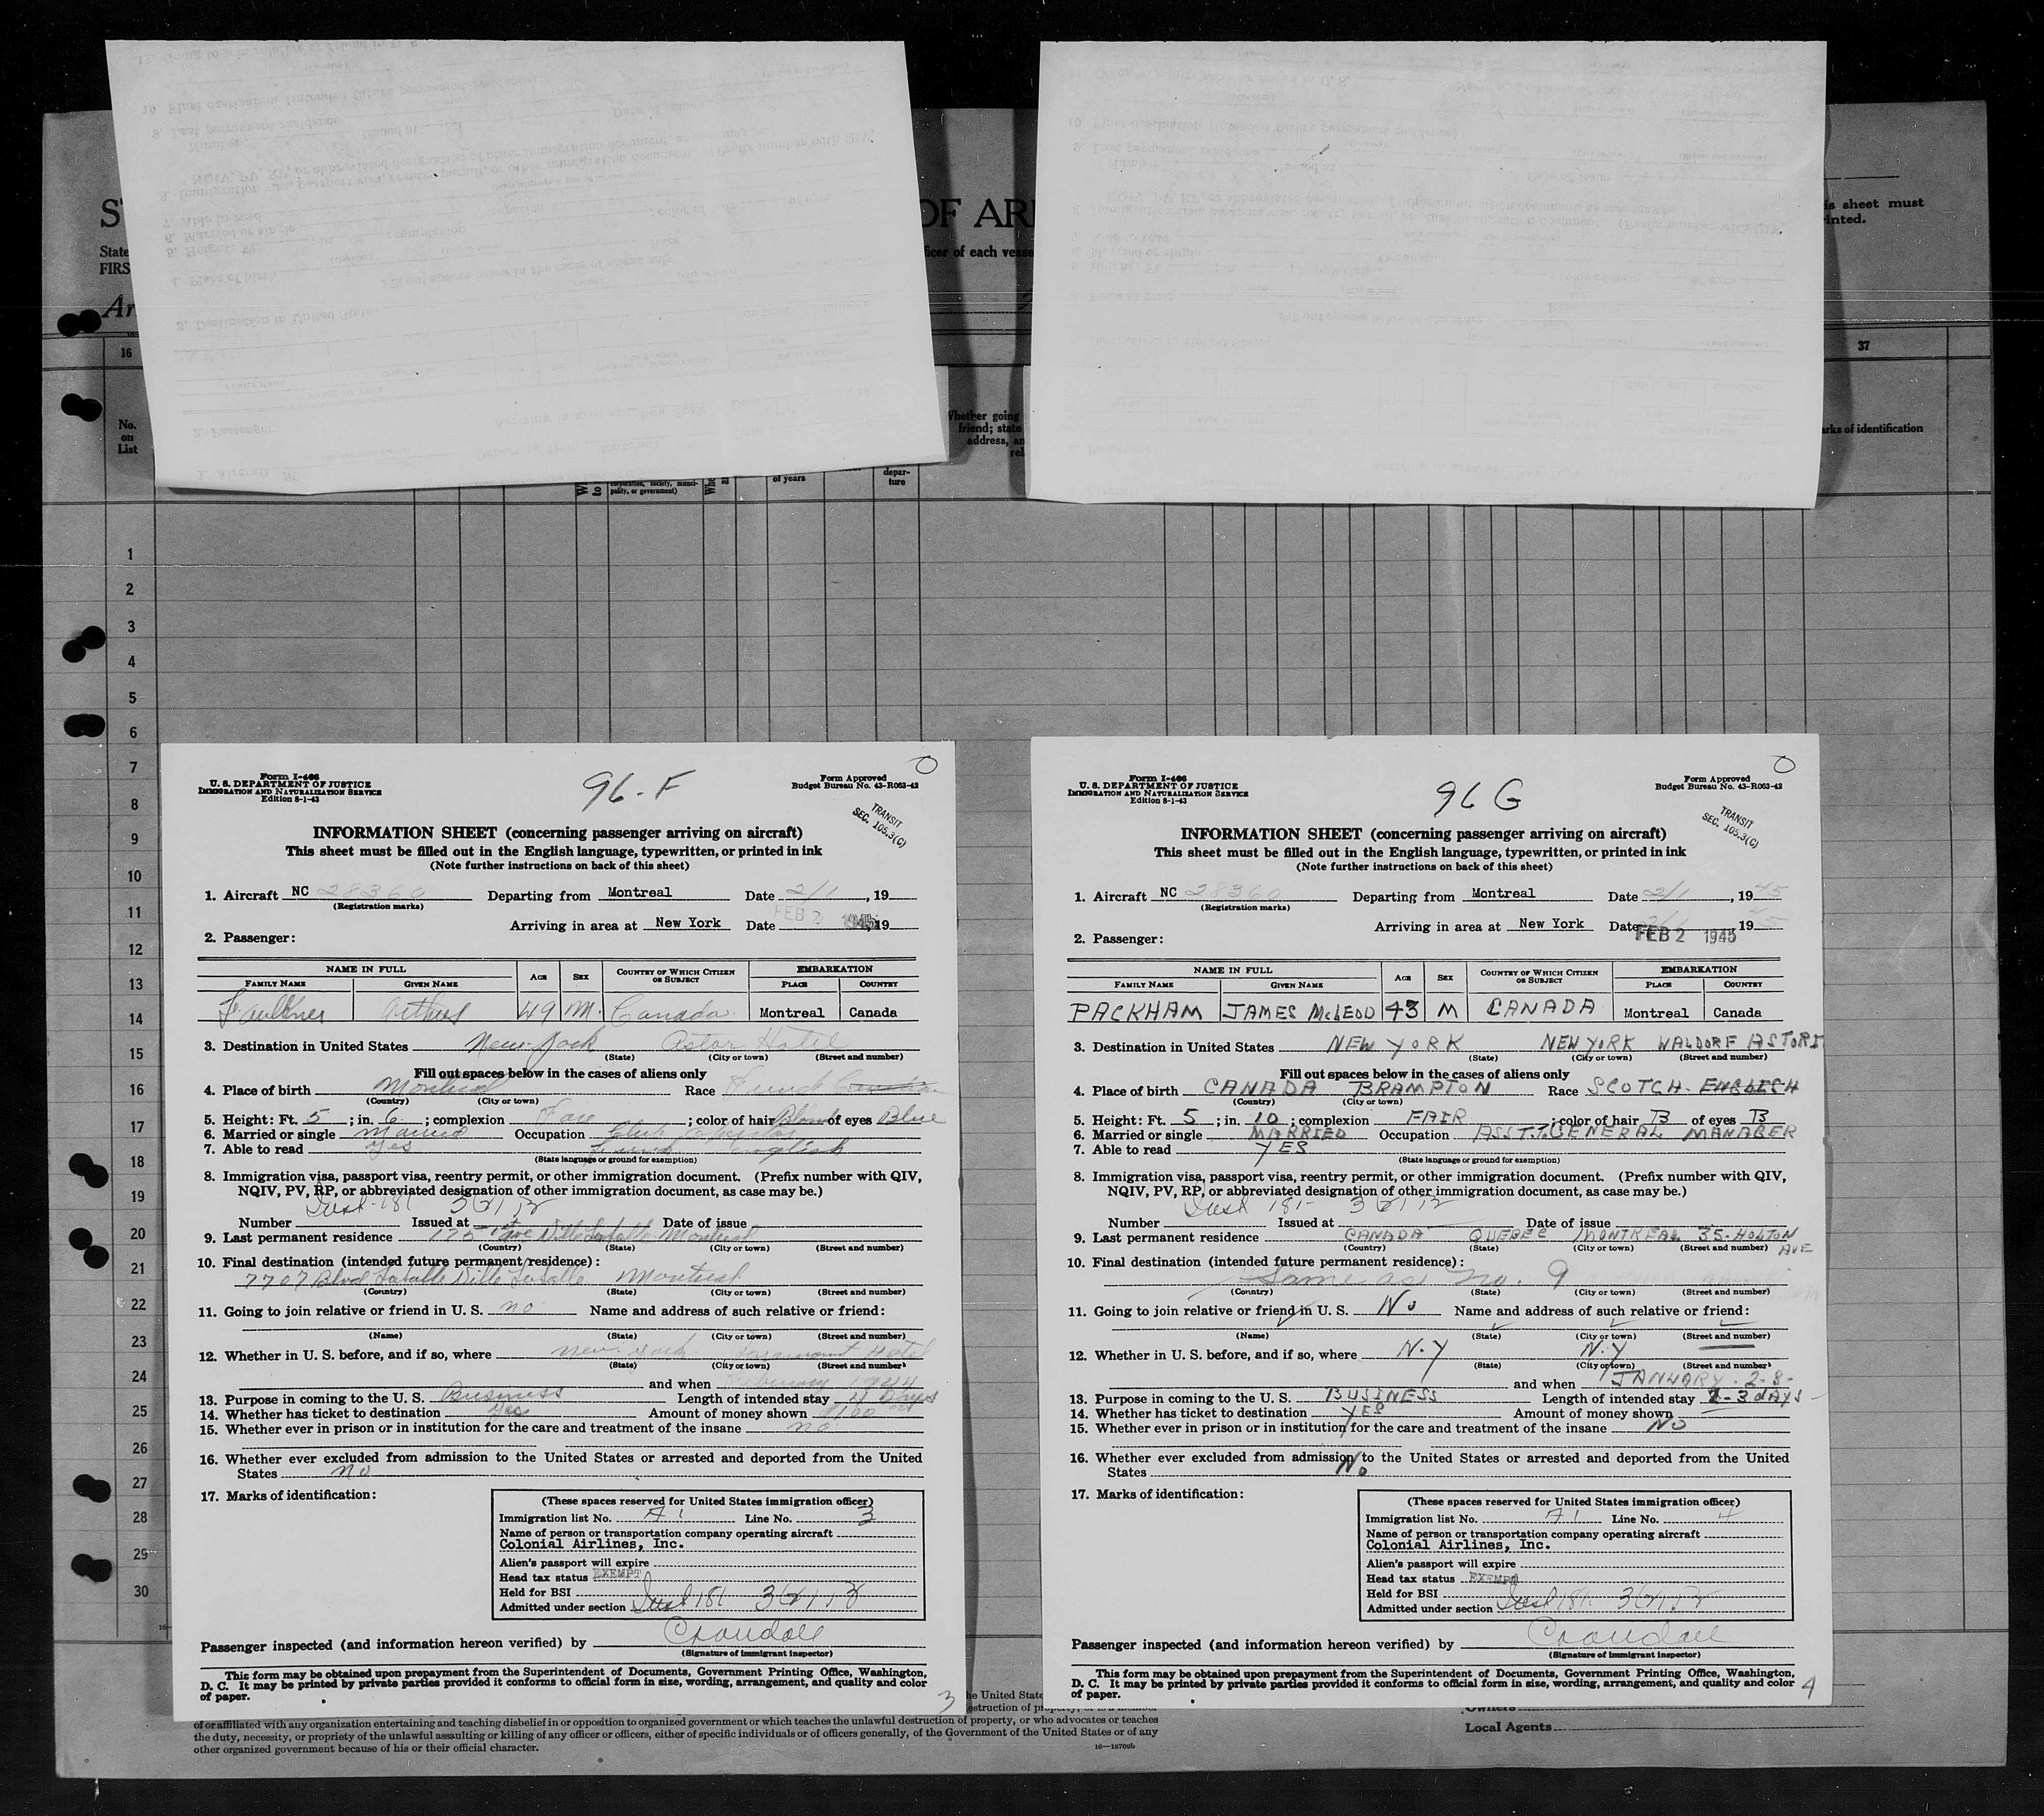 is sheet must
inted.
OF AR
ficer of each vesse
State
FIRS
Ar
16
37
No.
on
List
Whether going
friend; state
address, an
rel
rks of identification
corporation, society, munci-
pality, or government)
of years
depar-
ture
1
2
3
4
5
6
7
8
9
10
11
12
13
14
15
16
17
18
19
20
21
22
23
24
25
26
27
28
29
30
Form I-466
U. S. DEPARTMENT OF JUSTICE
IMMIGRATION AND NATURALIZATION SERVICE
Edition 8-1-43
96-F
Form Approved
Budget Bureau No. 43-R063-42
TRANSIT
SEC. 105.3(C)
INFORMATION SHEET (concerning passenger arriving on aircraft)
This sheet must be filled out in the English language, typewritten, or printed in ink
(Note further instructions on back of this sheet)
1. Aircraft NC 28360 Departing from Montreal Date 2/1, 19
(Registration marks)
Arriving in area at New York Date FEB 2 1945, 19
2. Passenger:
NAME IN FULL AGE SEX COUNTRY OF WHICH CITIZEN OR SUBJECT EMBARKATION
FAMILY NAME GIVEN NAME PLACE COUNTRY
Faulkner Arthur 49 M. Canada Montreal Canada
3. Destination in United States New York Astor Hotel
(State) (City or town) (Street and number)
Fill out spaces below in the cases of aliens only
4. Place of birth Montreal Race French Canadian
(Country) (City or town)
5. Height: Ft. 5; in. 6; complexion Fair; color of hair Blond of eyes Blue
6. Married or single Married Occupation Club Operator
7. Able to read Yes French English
(State language or ground for exemption)
8. Immigration visa, passport visa, reentry permit, or other immigration document. (Prefix number with QIV,
NQIV, PV, RP, or abbreviated designation of other immigration document, as case may be.)
Inst 181
Number Issued at Date of issue
9. Last permanent residence 175 1st ave Ville LaSalle Montreal
(Country) (State) (City or town) (Street and number)
10. Final destination (intended future permanent residence):
7707 Blvd LaSalle Ville LaSalle Montreal
(Country) (State) (City or town) (Street and number)
11. Going to join relative or friend in U. S. no Name and address of such relative or friend:
(Name) (State) (City or town) (Street and number)
12. Whether in U. S. before, and if so, where New York Paramount Hotel
(State) (City or town) (Street and number)
and when February 1944
13. Purpose in coming to the U. S. Business Length of intended stay Days
14. Whether has ticket to destination yes Amount of money shown $100
15. Whether ever in prison or in institution for the care and treatment of the insane no
16. Whether ever excluded from admission to the United States or arrested and deported from the United
States no
17. Marks of identification:
(These spaces reserved for United States immigration officer)
Immigration list No. A1 Line No. 3
Name of person or transportation company operating aircraft
Colonial Airlines, Inc.
Alien's passport will expire
Head tax status EXEMPT
Held for BSI
Admitted under section Inst 181
Passenger inspected (and information hereon verified) by Crandall
(Signature of immigrant inspector)
This form may be obtained upon prepayment from the Superintendent of Documents, Government Printing Office, Washington,
D. C. It may be printed by private parties provided it conforms to official form in size, wording, arrangement, and quality and color
of paper.
3
Form I-466
U. S. DEPARTMENT OF JUSTICE
IMMIGRATION AND NATURALIZATION SERVICE
Edition 8-1-43
96 G
Form Approved
Budget Bureau No. 43-R063-42
TRANSIT
SEC. 105.3(C)
INFORMATION SHEET (concerning passenger arriving on aircraft)
This sheet must be filled out in the English language, typewritten, or printed in ink
(Note further instructions on back of this sheet)
1. Aircraft NC 28360 Departing from Montreal Date 2/1 1945
(Registration marks)
Arriving in area at New York Date FEB 2 1945 1945
2. Passenger:
NAME IN FULL AGE SEX COUNTRY OF WHICH CITIZEN OR SUBJECT EMBARKATION
FAMILY NAME GIVEN NAME PLACE COUNTRY
PACKHAM JAMES McLEOD 43 M CANADA Montreal Canada
3. Destination in United States NEW YORK NEW YORK WALDORF ASTORI
(State) (City or town) (Street and number)
Fill out spaces below in the cases of aliens only
4. Place of birth CANADA BRAMPTON Race SCOTCH-ENGLISH
(Country) (City or town)
5. Height: Ft. 5; in. 10; complexion FAIR; color of hair B of eyes B
6. Married or single MARRIED Occupation ASST. GENERAL MANAGER
7. Able to read YES
(State language or ground for exemption)
8. Immigration visa, passport visa, reentry permit, or other immigration document. (Prefix number with QIV,
NQIV, PV, RP, or abbreviated designation of other immigration document, as case may be.)
Inst 181-
Number Issued at Date of issue
9. Last permanent residence CANADA QUEBEC MONTREAL 35-HOLTON AVE
(Country) (State) (City or town) (Street and number)
10. Final destination (intended future permanent residence):
Same as no. 9
(Country) (State) (City or town) (Street and number)
11. Going to join relative or friend in U. S. No Name and address of such relative or friend:
(Name) (State) (City or town) (Street and number)
12. Whether in U. S. before, and if so, where N.Y N.Y
(State) (City or town) (Street and number)
and when JANUARY-2-8-
13. Purpose in coming to the U. S. BUSINESS Length of intended stay 2-3 dAYS
14. Whether has ticket to destination YES Amount of money shown
15. Whether ever in prison or in institution for the care and treatment of the insane NO
16. Whether ever excluded from admission to the United States or arrested and deported from the United
States No
17. Marks of identification:
(These spaces reserved for United States immigration officer)
Immigration list No. A1 Line No. 4
Name of person or transportation company operating aircraft
Colonial Airlines, Inc.
Alien's passport will expire
Head tax status EXEMPT
Held for BSI
Admitted under section Inst 181
Passenger inspected (and information hereon verified) by Crandall
(Signature of immigrant inspector)
This form may be obtained upon prepayment from the Superintendent of Documents, Government Printing Office, Washington,
D. C. It may be printed by private parties provided it conforms to official form in size, wording, arrangement, and quality and color
of paper.
4
he United State
estruction of property, or is a member
of or affiliated with any organization entertaining and teaching disbelief in or opposition to organized government or which teaches the unlawful destruction of property, or who advocates or teaches
the duty, necessity, or propriety of the unlawful assaulting or killing of any officer or officers, either of specific individuals or of officers generally, of the Government of the United States or of any
other organized government because of his or their official character.
16—16709b
Owners
Local Agents